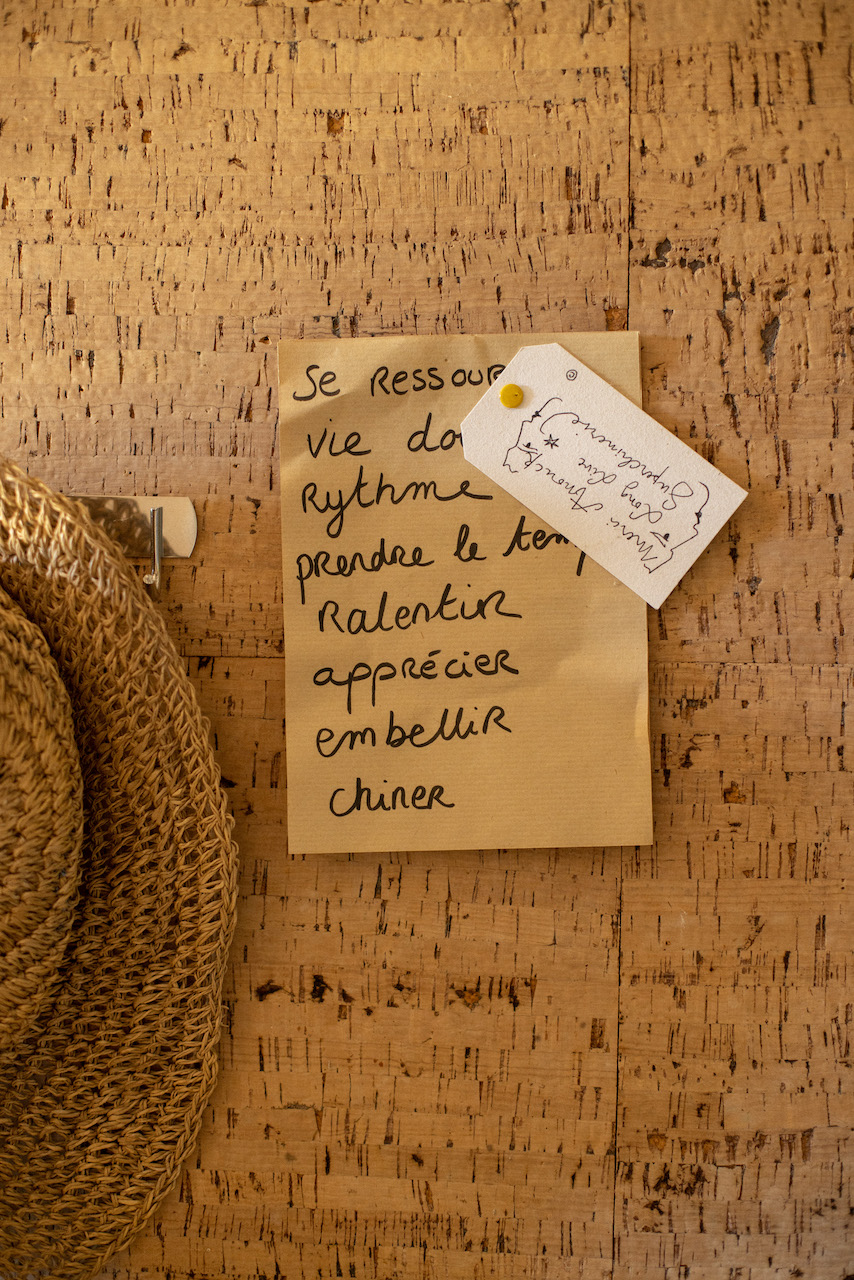 Se RESSOUR
vie do
Rythme
prendre le temp
Ralentir
apprécier
embellir
chiner
Merci
Long Live
Superchinerie